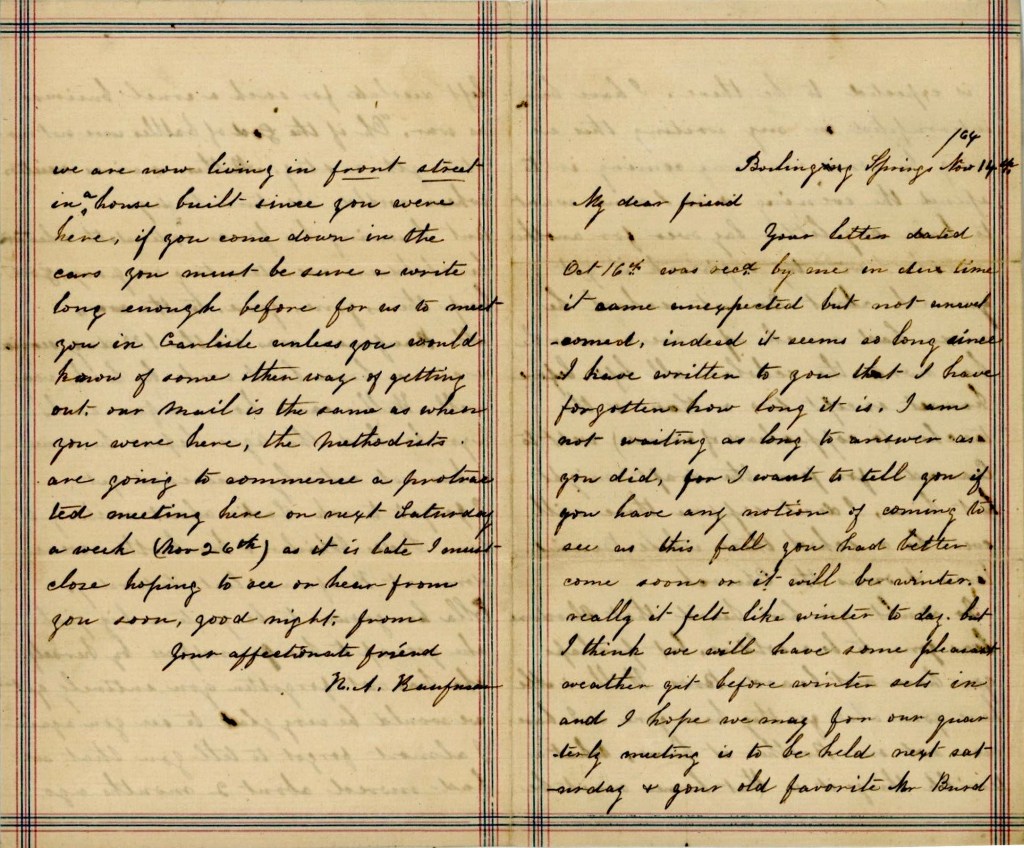 /64
Boilinging Springs Nov 14th
My dear friend
Your letter dated
Oct 16th was recd by me in due time
it came unexpected but not unwel
-comed, indeed it seems so long since
I have written to you that I have
forgotten how long it is. I am
not waiting as long to answer as
you did, for I want to tell you if
you have any notion of coming to
see us this fall you had better
come soon or it will be winter.
really it felt like winter to day. but
I think we will have some pleasant
weather yet before winter sets in
and I hope we may for our quar
-terly meeting is to be held next sat
-urday & your old favorite Mr Burd
we are now living in front street
in a house built since you were
here, if you come down in the
cars you must be sure & write
long enough before for us to meet
you in Carlisle unless you would
know of some other way of getting
out. our mail is the same as when
you were here, the Methodists
are going to commence a protrac
ted meeting here on next Saturday
a week (Nov 26th) as it is late I must
close hoping to see or hear from
you soon, good night. from
Your affectionate friend
N. A. Kaufman